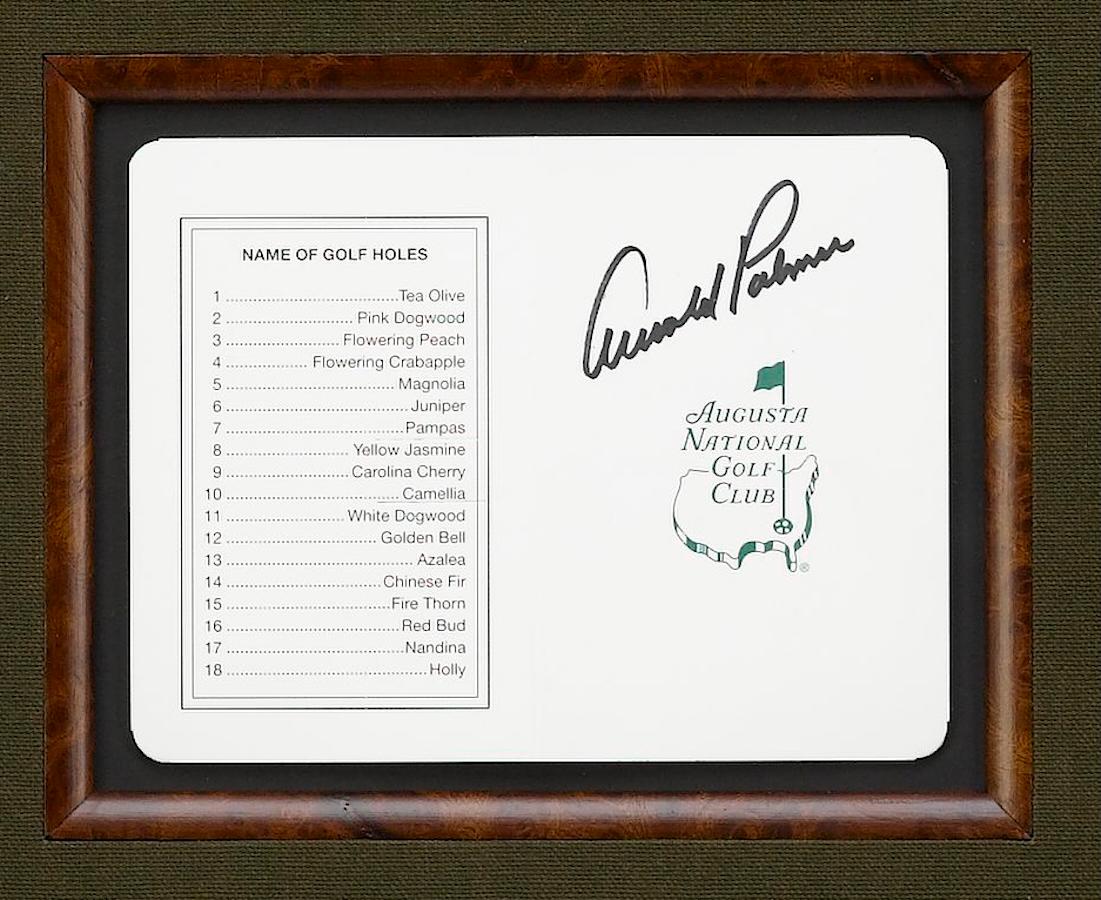 NAME OF GOLF HOLES
1 ........................................ Tea Olive
2 ............................... Pink Dogwood
3 ........................... Flowering Peach
4 ................... Flowering Crabapple
5 ........................................ Magnolia
6 ........................................... Juniper
7 ......................................... Pampas
8 .............................. Yellow Jasmine
9 ............................. Carolina Cherry
10 ........................................ Camellia
11 ........................... White Dogwood
12 ................................... Golden Bell
13 ........................................... Azalea
14 .................................... Chinese Fir
15 ...................................... Fire Thorn
16 ........................................ Red Bud
17 ......................................... Nandina
18 .............................................. Holly
Arnold Palmer
AUGUSTA
NATIONAL
GOLF
CLUB
®